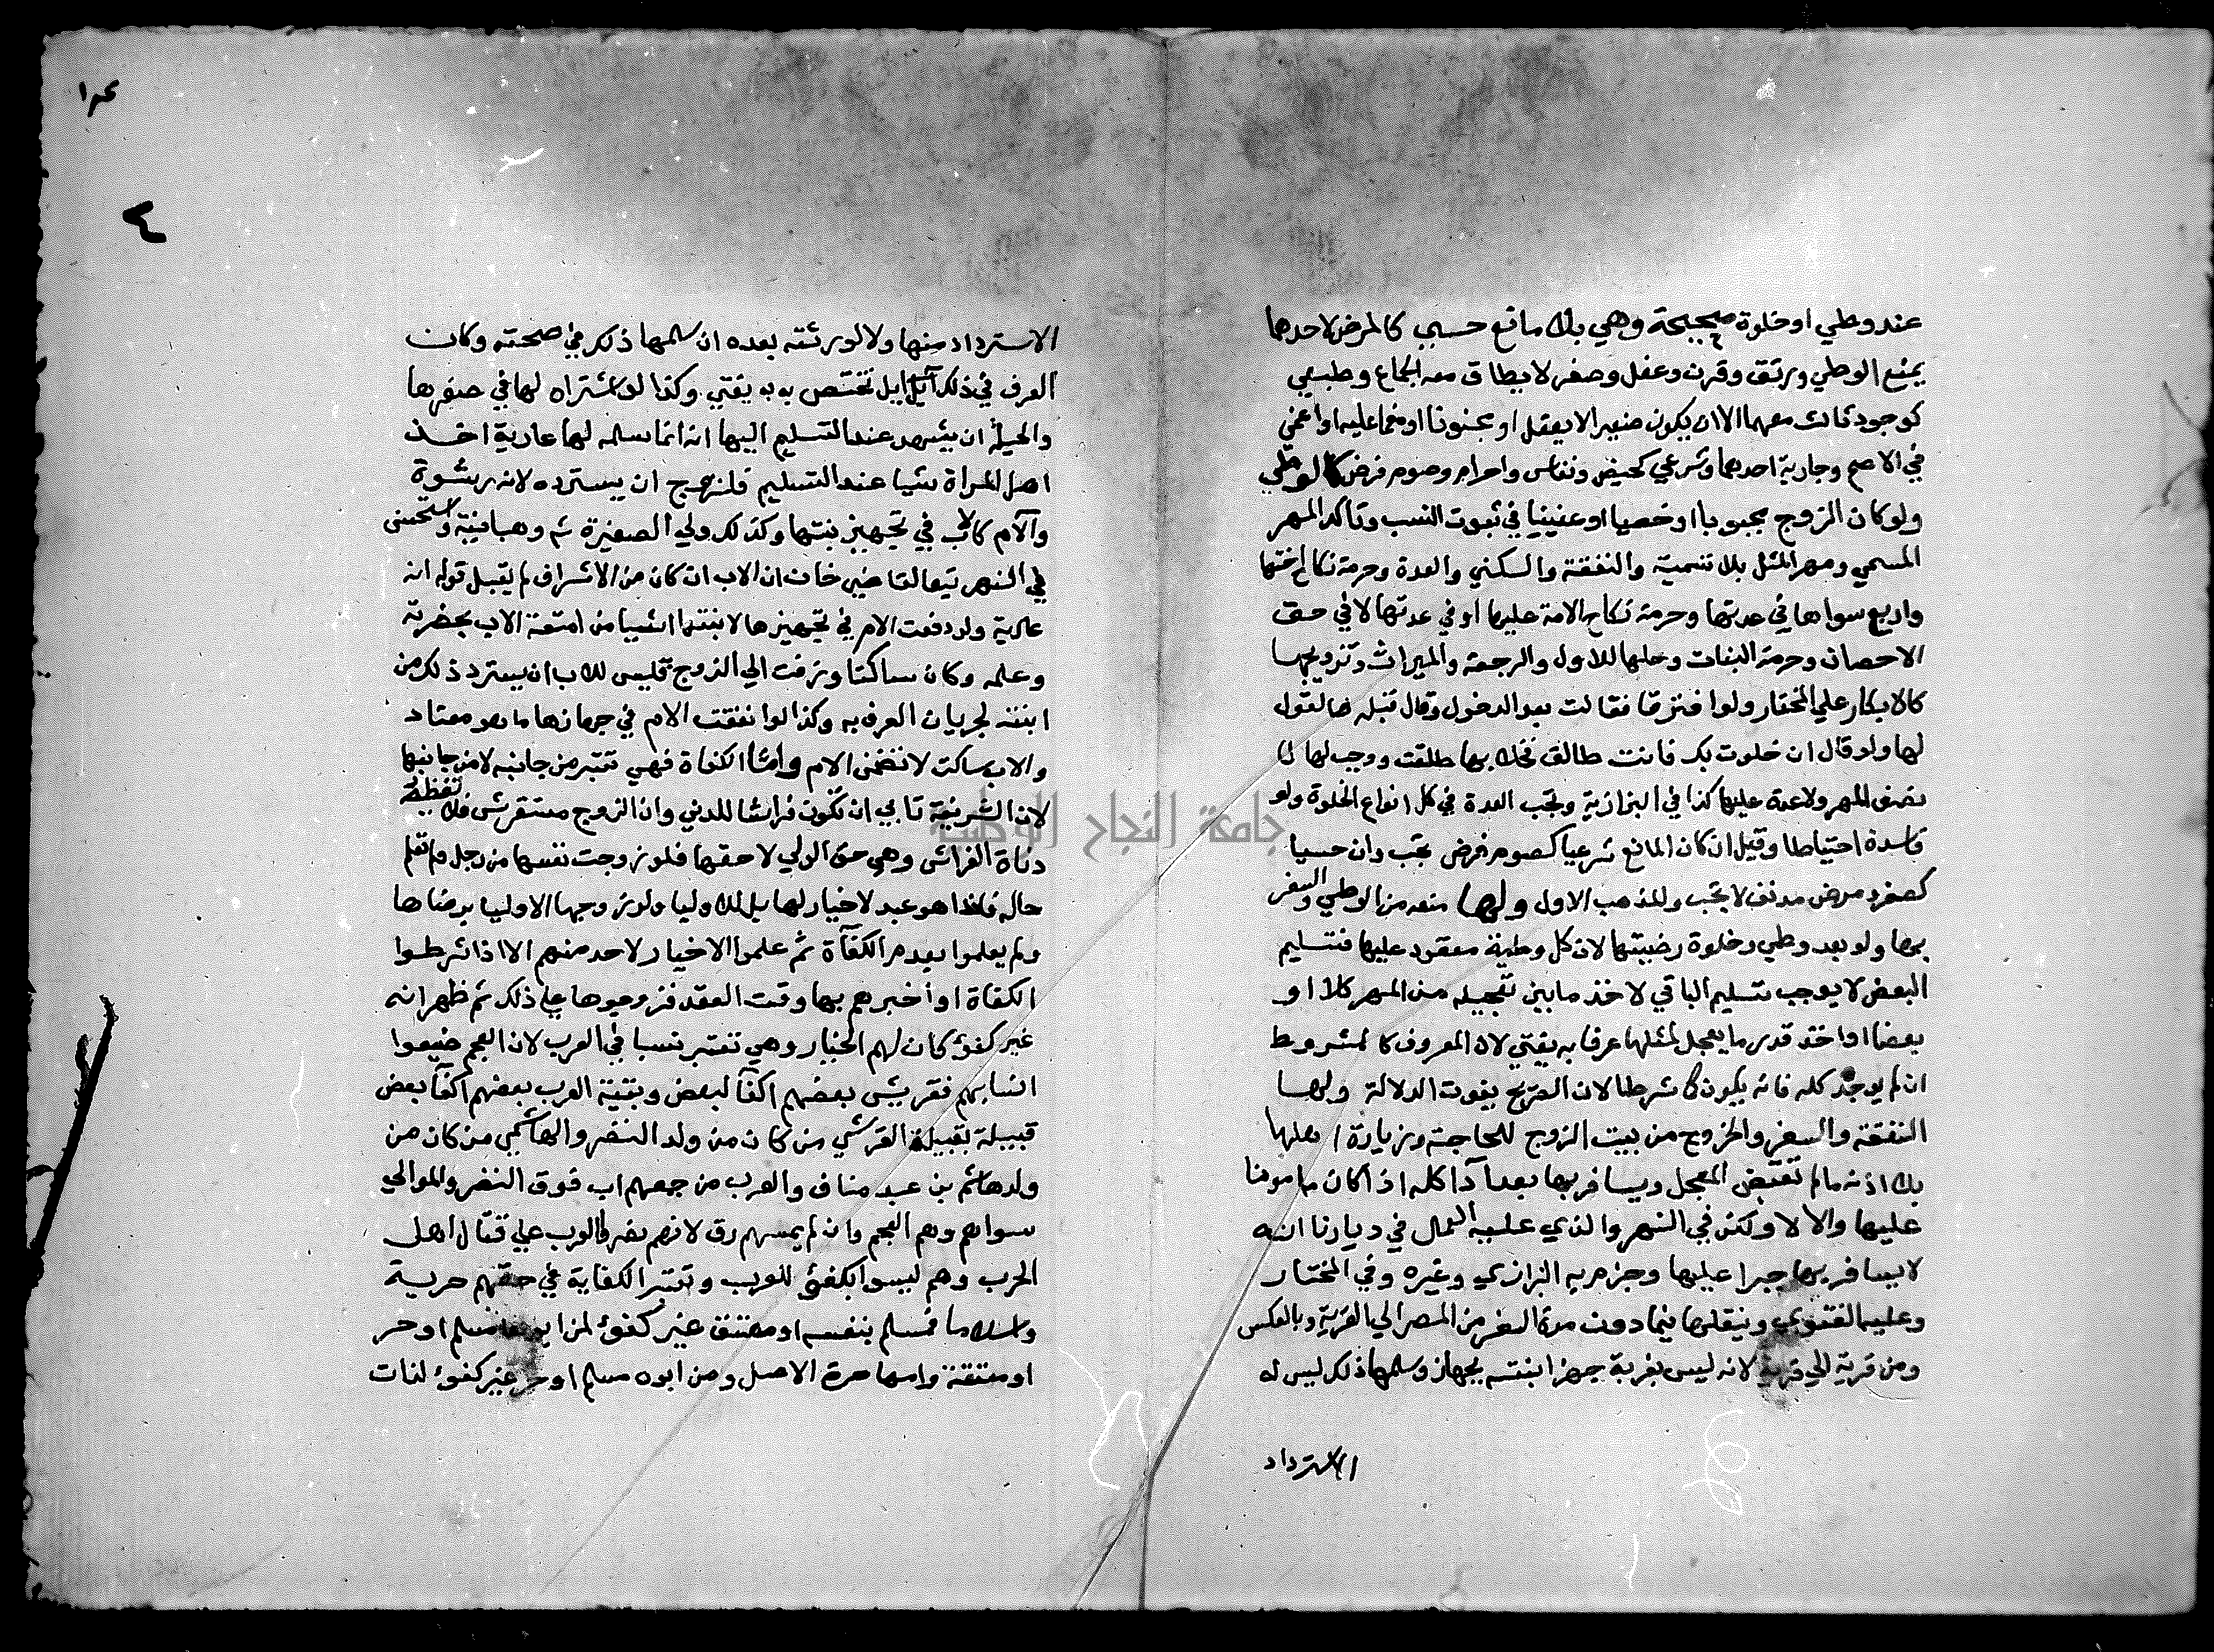 عند وطي او خلوة صحيحة وهي بلا مانع حسي كالمرض لاحدهما
يمنع الوطي ورتق وقرن وعفل وصغر لا يطاق معه الجماع وطبيعي
كوجود ثالث معهما الا ان يكون صغيرا لا يعقل او مجنونا او مغما عليه او اعمي
في الاصح وجارية احدهما وشرعي كحيض ونفاس واحرام وصوم فرض كالوطي
ولو كان الزوج مجبوبا او خصيا او عنينا في ثبوت النسب وتاكد المهر
المسمي ومهر المثل بلا تسمية والنفقة والسكني والعدة وحرمة نكاح اختها
واربع سواها في عدتها وحرمة نكاح الامة عليها او في عدتها لا في حق
الاحصان وحرمة البنات وحلها للاول والرجعة والميراث وتزويجها
كالابكار علي المختار ولو افترقا فقالت بعد الدخول وقال قبله فالقول
لها ولو قال ان خلوت بك فانت طالق فخلا بها طلقت ووجب لها
نصف المهر ولا عدة عليها كذا في البزازية وتجب العدة في كل انواع الخلوة ولو
فاسدة احتياطا وقيل ان كان المانع شرعيا كصوم فرض تجب وان حسيا
كصغر ومرض مدنف لا تجب والمذهب الاول ولها منعه من الوطي والسفر
بها ولو بعد وطي وخلوة رضيتها لان كل وطية معقود عليها فتسليم
البعض لا يوجب تسليم الباقي لاخذ ما بين تعجيله من المهر كلا او
بعضا او اخذ قدر ما يعجل لمثلها عرفا به يفتي لان المعروف كالمشروط
ان لم يوجد كله فانه يكون كما شرطا لان الصريح يفوت الدلالة ولها
النفقة والسفر والخروج من بيت الزوج للحاجة وزيارة اهلها
بلا اذنه ما لم تقبض المعجل ويسافر بها بعد اداكله اذا كان مامونا
عليها والا لا ولكن في النهر والذي عليه العمل في ديارنا انه
لا يسافر بها جبرا عليها وجزم به البزازي وغيره وفي المختار
وعليه الفتوي وينقلها فيما دون مدة السفر من المصر الي القرية وبالعكس
ومن قرية الي قرية لانه ليس بغربة جهز ابنته بجهاز وسلمها ذلك ليس له
الاسترداد
١٣٤
٤
الاسترداد منها ولا لورثته بعده ان سلمها ذلك في صحته وكان
العرف في ذلك ان بل تختص به به يفتي وكذا لو اشتراه لها في صغرها
والحيلة ان يشهد عند التسليم اليها انه انما سلمه لها عارية اخذ
اهل المراة شيا عند التسليم فللزوج ان يسترده لانه رشوة
والام كالاب في تجهيز بنتها وكذلك ولي الصغيرة شرح وهبانية واستحسن
في النهر تبعا لقاضي خان ان الاب ان كان من الاشراف لم يقبل قوله انه
عارية ولو دفعت الام في تجهيزها لابنتها اشيا من امتعة الاب بحضرته
وعلمه وكان ساكتا وزفت الي الزوج فليس للاب ان يسترد ذلك من
ابنته لجريان العرف به وكذا لو انفقت الام في جهازها ما هو معتاد
والاب ساكت لا تضمن الام وامّا الكفاة فهي تعتبر من جانبه لا من جانبها
لان الشريفة تابي ان تكون فراشا للدني وان الزوج مستفرش فلا تغظه
دناة الفراش وهي حق الولي لا حقها فلو زوجت نفسها من رجل ولم تعلم
حاله فاذا هو عبد لا خيار لها بل للاوليا ولو زوجها الاوليا برضاها
ولم يعلموا بعدم الكفاة ثم علموا لا خيار لاحد منهم الا اذا شرطوا
الكفاة او اخبرهم بها وقت العقد فزوجوها علي ذلك ثم ظهر انه
غير كفؤ كان لهم الخيار وهي تعتبر نسبا في العرب لان العجم ضيعوا
انسابهم فقريش بعضهم اكفآ لبعض وبقية العرب بعضهم اكفآ بعض
قبيلة بقبيلة القرشي من كان من ولد النضر والهاشمي من كان من
ولد هاشم بن عبد مناف والعرب من جمعهم اب فوق النضر والموالي
سواهم وهم العجم وان لم يمسهم رق لانهم نصروا العرب علي قتال اهل
الحرب وهم ليسوا بكفؤ للعرب وتعتبر الكفاية في حقهم حرية
واسلاما فمسلم بنفسه او معتق غير كفؤ لمن ابوها مسلم او حر
او معتقة وامها حرة الاصل ومن ابوه مسلم او حر غير كفؤ لذات